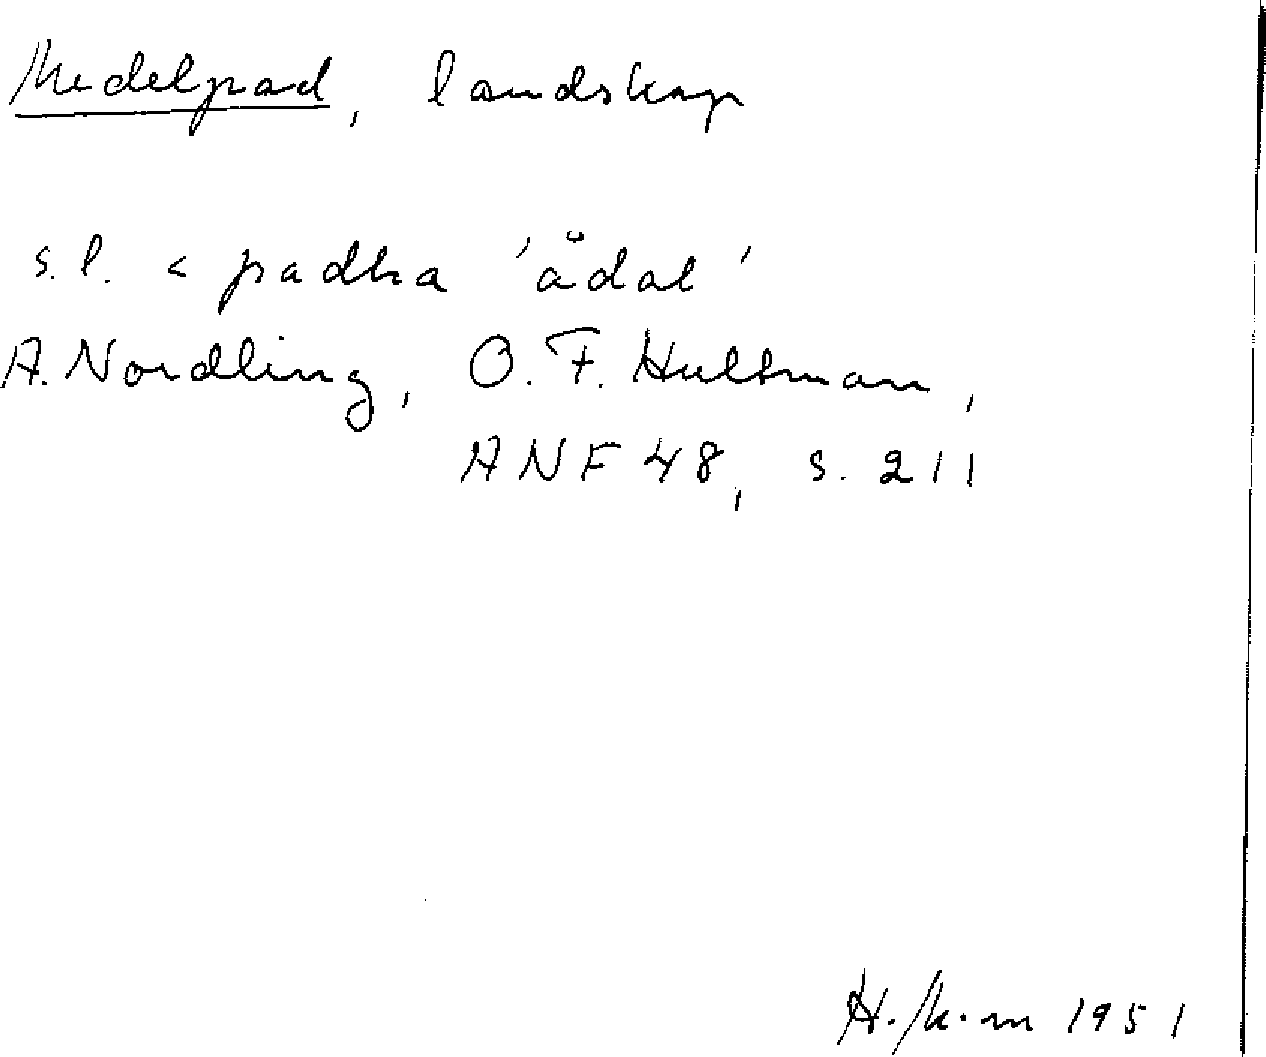 Medelpad, landskap
s.l. < padha 'ådal'
A. Nordling, O. F. Hultman,
ANF 48, s. 211
H. M-m 1951